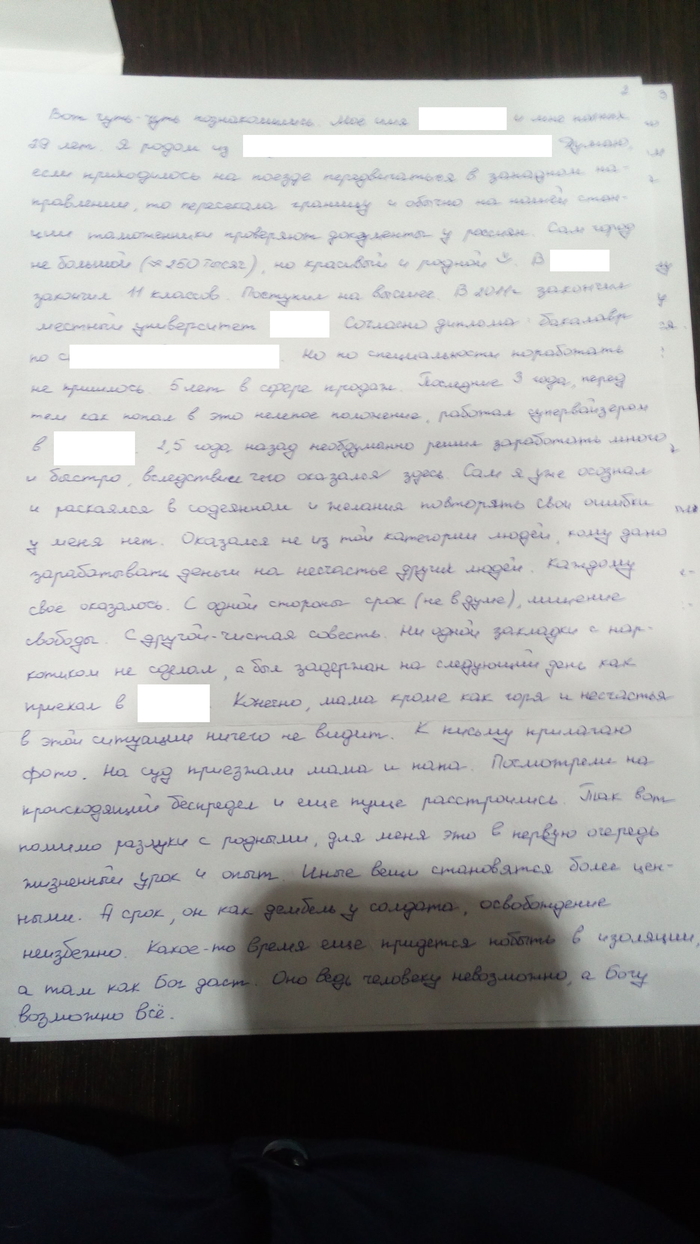 2 3
Вот чуть-чуть познакомились. Моё имя и мне полных
29 лет. Я родом из Думаю,
если приходилось на поезде передвигаться в западном на-
правлении, то пересекала границу и обычно на нашей стан-
ции таможенники проверяют документы у россиян. Сам город
не большой (≈ 260 тысяч), но красивый и родной. В
закончил 11 классов. Поступил на высшее. В 2011г закончил
местный университет Согласно диплома бакалавр
по с . Но по специальности поработать
не пришлось. 5 лет в сфере продаж. Последние 3 года, перед
тем как попал в это нелепое положение, работал супервайзером
в . 2,5 года назад необдуманно решил заработать много
и быстро, вследствие чего оказался здесь. Сам я уже осознал
и раскаялся в содеянном и желания повторять свои ошибки
у меня нет. Оказался не из той категории людей, кому дано
зарабатывать деньги на несчастье других людей. Каждому
свое оказалось. С одной стороны срок (не в думе), лишение
свободы. С другой-чистая совесть. Ни одной закладки с нар-
котиком не сделал, а был задержан на следующий день как
приехал в . Конечно, мама кроме как горя и несчастья
в этой ситуации ничего не видит. К письму прилагаю
фото. На суд приезжали мама и папа. Посмотрели на
происходящий беспредел и еще пуще расстроились. Так вот
помимо разлуки с родными, для меня это в первую очередь
жизненный урок и опыт. Иные вещи становятся более цен-
ными. А срок, он как дембель у солдата, освобождение
неизбежно. Какое-то время еще придется побыть в изоляции,
а там как Бог даст. Оно ведь человеку невозможно, а Богу
возможно всё.